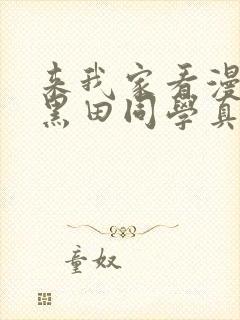 来我家看漫
黑田同學真
童奴